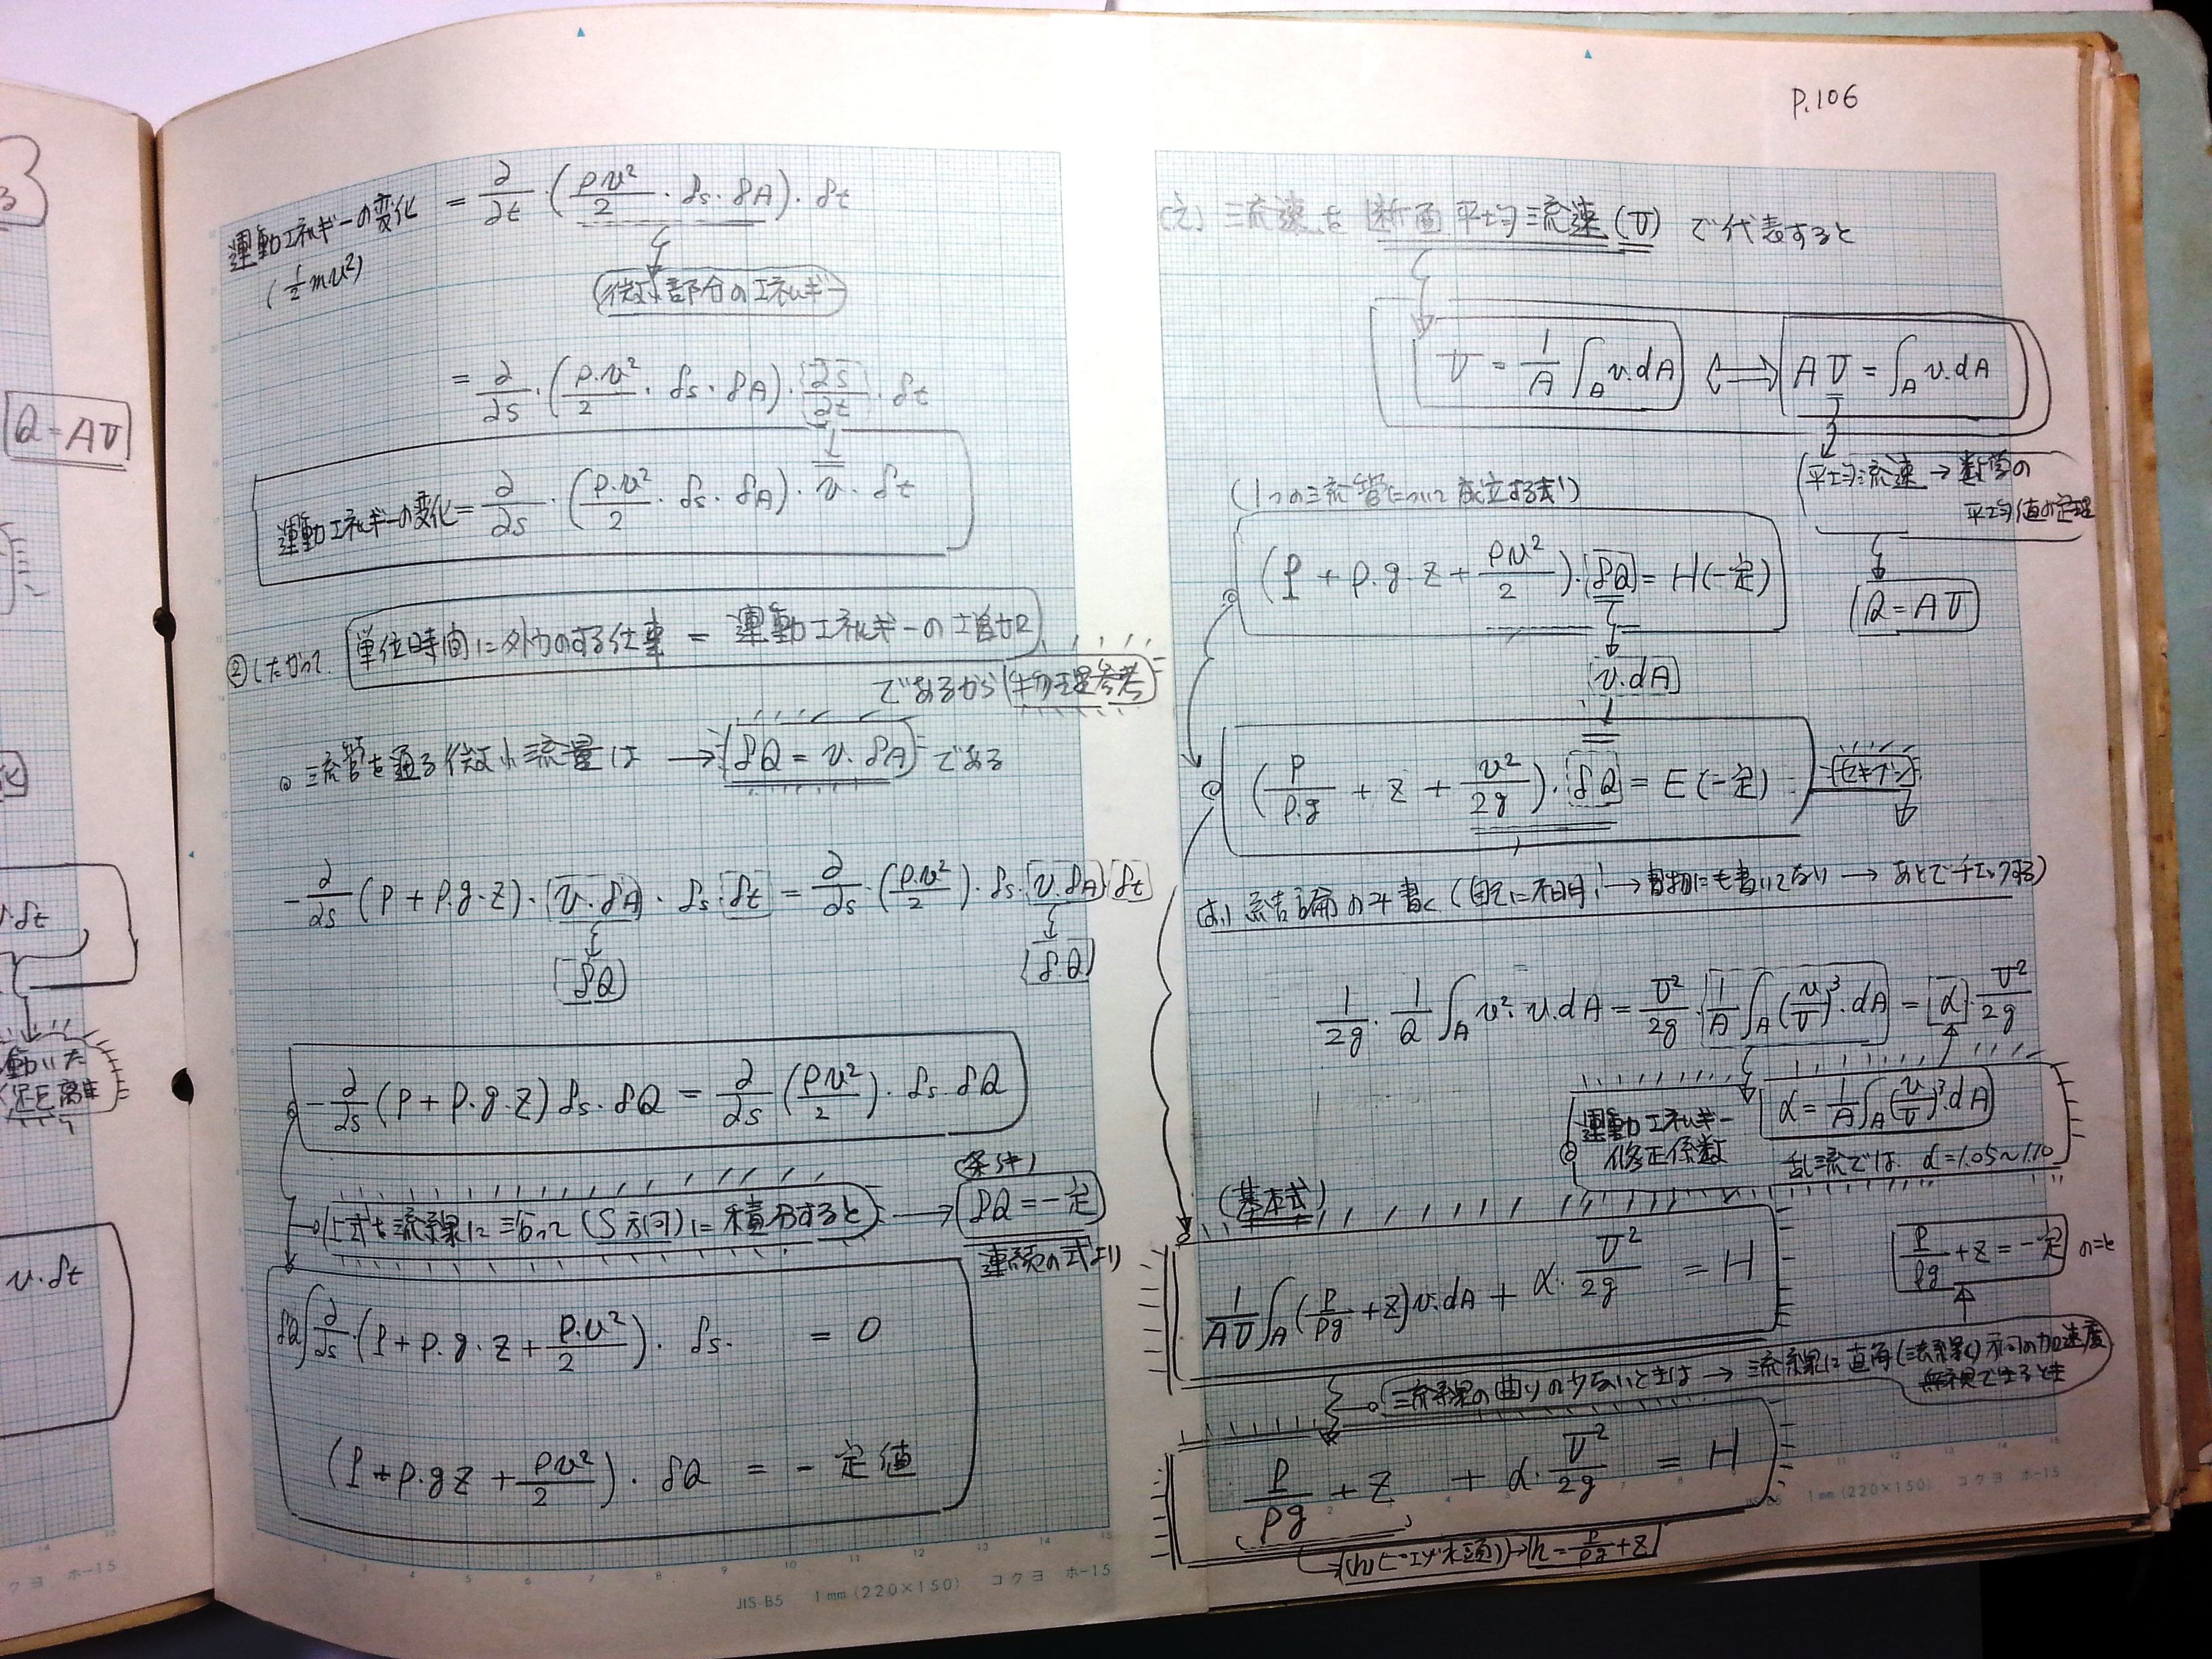 Q = AV
v・δt
動いた
距離
v・δt
運動エネルギーの変化 = ∂/∂t・(ρv²/2・δs・δA)・δt
(1/2 mv²)
微小部分のエネルギー
= ∂/∂s・(ρ・v²/2・δs・δA)・∂s/∂t・δt
運動エネルギーの変化 = ∂/∂s・(ρ・v²/2・δs・δA)・v・δt
② したがって、単位時間に外力のする仕事 = 運動エネルギーの増加
であるから (物理参考)
◎ 流管を通る微小流量は → δQ = v・δA である
-∂/∂s(P + ρ・g・z)・v・δA・δs・δt = ∂/∂s・(ρ・v²/2)・δs・v・δA・δt
δQ
δQ
-∂/∂s(P + ρ・g・z)δs・δQ = ∂/∂s(ρv²/2)・δs・δQ
(条件)
上式を流線に沿って(S方向)に積分すると → δQ = 一定
連続の式より
δQ∫∂/∂s・(P + ρ・g・z + ρ・v²/2)・δs・ = 0
(P + ρ・gz + ρv²/2)・δQ = 一定値
JIS-B5 1mm(220×150) コクヨ ホ-15
P.106
流速を断面平均流速(V)で代表すると
V = 1/A ∫A v・dA ⟺ AV = ∫A v・dA
平均流速 → 数学の
平均値の定理
(1つの流管について成立する式)
(P + ρ・g・z + ρv²/2)・δQ = H(一定)
Q = AV
v・dA
(P/ρ・g + z + v²/2g)・δQ = E(一定)
セキブン
結論のみ書く (自己に不明! → 書物にも書いてない → あとでチェックする)
1/2g・1/Q ∫A v²・v・dA = V²/2g・1/A ∫A (v/V)³・dA = α・V²/2g
運動エネルギー
修正係数
α = 1/A ∫A (v/V)³・dA
乱流では α = 1.05~1.10
(基本式)
1/AV ∫A (P/ρg + z)v・dA + α・V²/2g = H
P/ρg + z = 一定 のこと
流線の曲りの少ないときは → 流線に直角(法線)方向の加速度
無視できるとき
P/ρg + z + α・V²/2g = H
(h)ピエゾ水頭 → h = P/ρg + z
1mm(220×150) コクヨ ホ-15